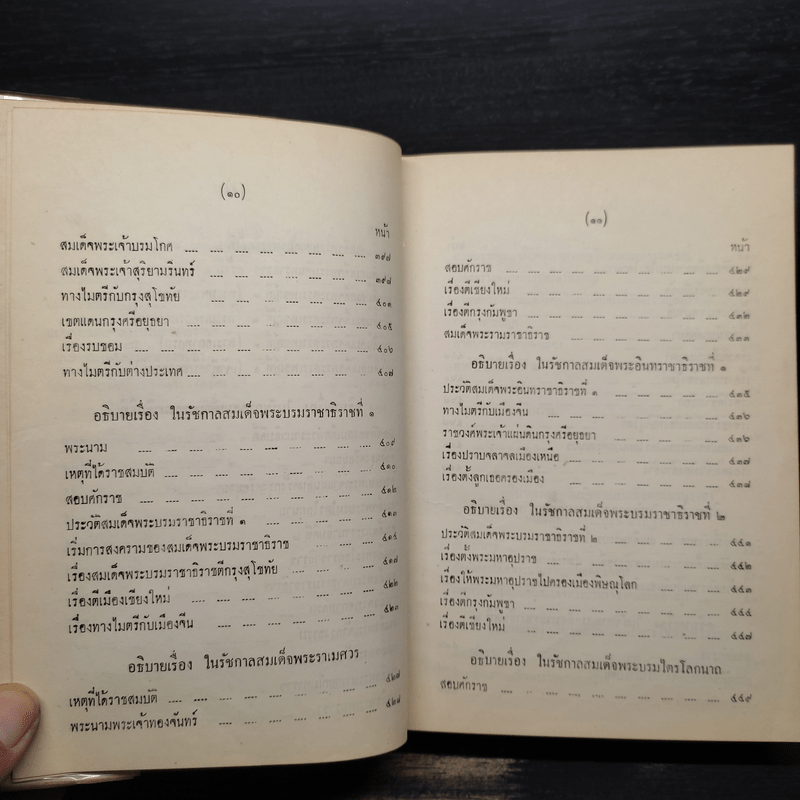 (๑๐)
หน้า
สมเด็จพระเจ้าบรมโกศ .... .... .... .... .... .... .... ๓๙๗
สมเด็จพระเจ้าสุริยามรินทร์ .... .... .... .... .... .... .... ๓๙๘
ทางไมตรีกับกรุงสุโขทัย .... .... .... .... .... .... .... ๔๐๑
เขตแดนกรุงศรีอยุธยา .... .... .... .... .... .... .... ๔๐๕
เรื่องรบขอม .... .... .... .... .... .... .... .... ๔๐๖
ทางไมตรีกับต่างประเทศ .... .... .... .... .... .... .... ๔๐๗
อธิบายเรื่อง ในรัชกาลสมเด็จพระบรมราชาธิราชที่ ๑
พระนาม .... .... .... .... .... .... .... .... ๔๐๙
เหตุที่ได้ราชสมบัติ .... .... .... .... .... .... .... ๔๑๐
สอบศักราช .... .... .... .... .... .... .... .... ๔๑๒
ประวัติสมเด็จพระบรมราชาธิราชที่ ๑ .... .... .... .... ๔๑๓
เริ่มการสงครามของสมเด็จพระบรมราชาธิราช .... .... .... ๔๑๔
เรื่องสมเด็จพระบรมราชาธิราชตีกรุงสุโขทัย .... .... .... .... ๔๑๗
เรื่องตีเมืองเชียงใหม่ .... .... .... .... .... .... ๔๒๒
เรื่องทางไมตรีกับเมืองจีน .... .... .... .... .... .... ๔๒๓
อธิบายเรื่อง ในรัชกาลสมเด็จพระราเมศวร
เหตุที่ได้ราชสมบัติ .... .... .... .... .... .... .... ๔๒๗
พระนามพระเจ้าทองจันทร์ .... .... .... .... .... .... ๔๒๘
(๑๑)
หน้า
สอบศักราช .... .... .... .... .... .... .... .... ๔๒๙
เรื่องตีเชียงใหม่ .... .... .... .... .... .... .... ๔๒๙
เรื่องตีกรุงกัมพูชา .... .... .... .... .... .... .... ๔๓๒
สมเด็จพระรามราชาธิราช .... .... .... .... .... .... ๔๓๓
อธิบายเรื่อง ในรัชกาลสมเด็จพระอินทราชาธิราชที่ ๑
ประวัติสมเด็จพระอินทราชาธิราชที่ ๑ .... .... .... .... ๔๓๕
ทางไมตรีกับเมืองจีน .... .... .... .... .... .... .... ๔๓๖
ราชวงศ์พระเจ้าแผ่นดินกรุงศรีอยุธยา .... .... .... .... ๔๓๖
เรื่องปราบจลาจลเมืองเหนือ .... .... .... .... .... ๔๓๗
เรื่องตั้งลูกเธอครองเมือง .... .... .... .... .... ๔๓๘
อธิบายเรื่อง ในรัชกาลสมเด็จพระบรมราชาธิราชที่ ๒
ประวัติสมเด็จพระบรมราชาธิราชที่ ๒ .... .... .... .... ๔๔๑
เรื่องตั้งพระมหาอุปราช .... .... .... .... .... .... ๔๔๒
เรื่องให้พระมหาอุปราชไปครองเมืองพิษณุโลก .... .... .... ๔๔๓
เรื่องตีกรุงกัมพูชา .... .... .... .... .... .... .... ๔๔๔
เรื่องตีเชียงใหม่ .... .... .... .... .... .... .... ๔๔๗
อธิบายเรื่อง ในรัชกาลสมเด็จพระบรมไตรโลกนาถ
สอบศักราช .... .... .... .... .... .... .... .... ๔๔๙